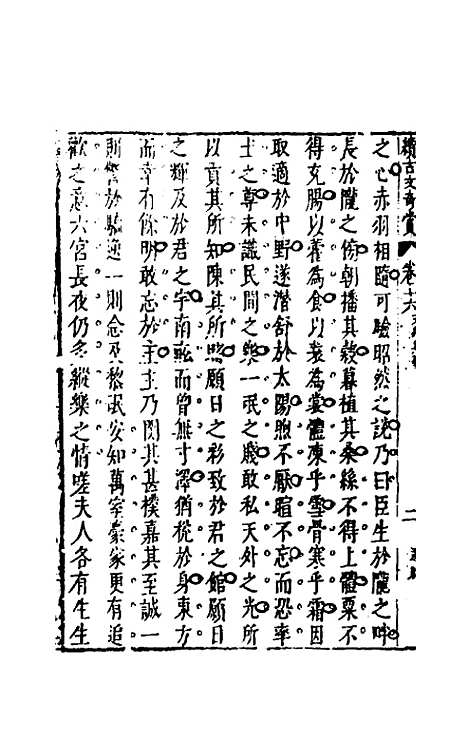 續古文奇賞 卷十六 二
之心赤羽相隨可驗昭然之說乃曰臣生於隴之畔
長於隴之傍朝播其穀暮植其桑絲不得上體粟不
得充腸以養為食以裘為裳體凍乎雪骨寒乎霜因
取適於中野遂潛舒於太陽煦不厭暄不忘而恐率
土之尊未識民間之樂一氓之賤敢私天外之光所
以貢其所知陳其所賜願日之彩致於君之館願日
之輝及於君之宇南畝而曾無寸澤猶稅於身東方
而幸有餘明敢忘於主主乃閔其甚樸嘉其至誠一
則繫於驕逸一則念及黎氓安知萬室豪家更有追
歡之意六宮長夜仍多縱樂之情嗟夫人各有生生